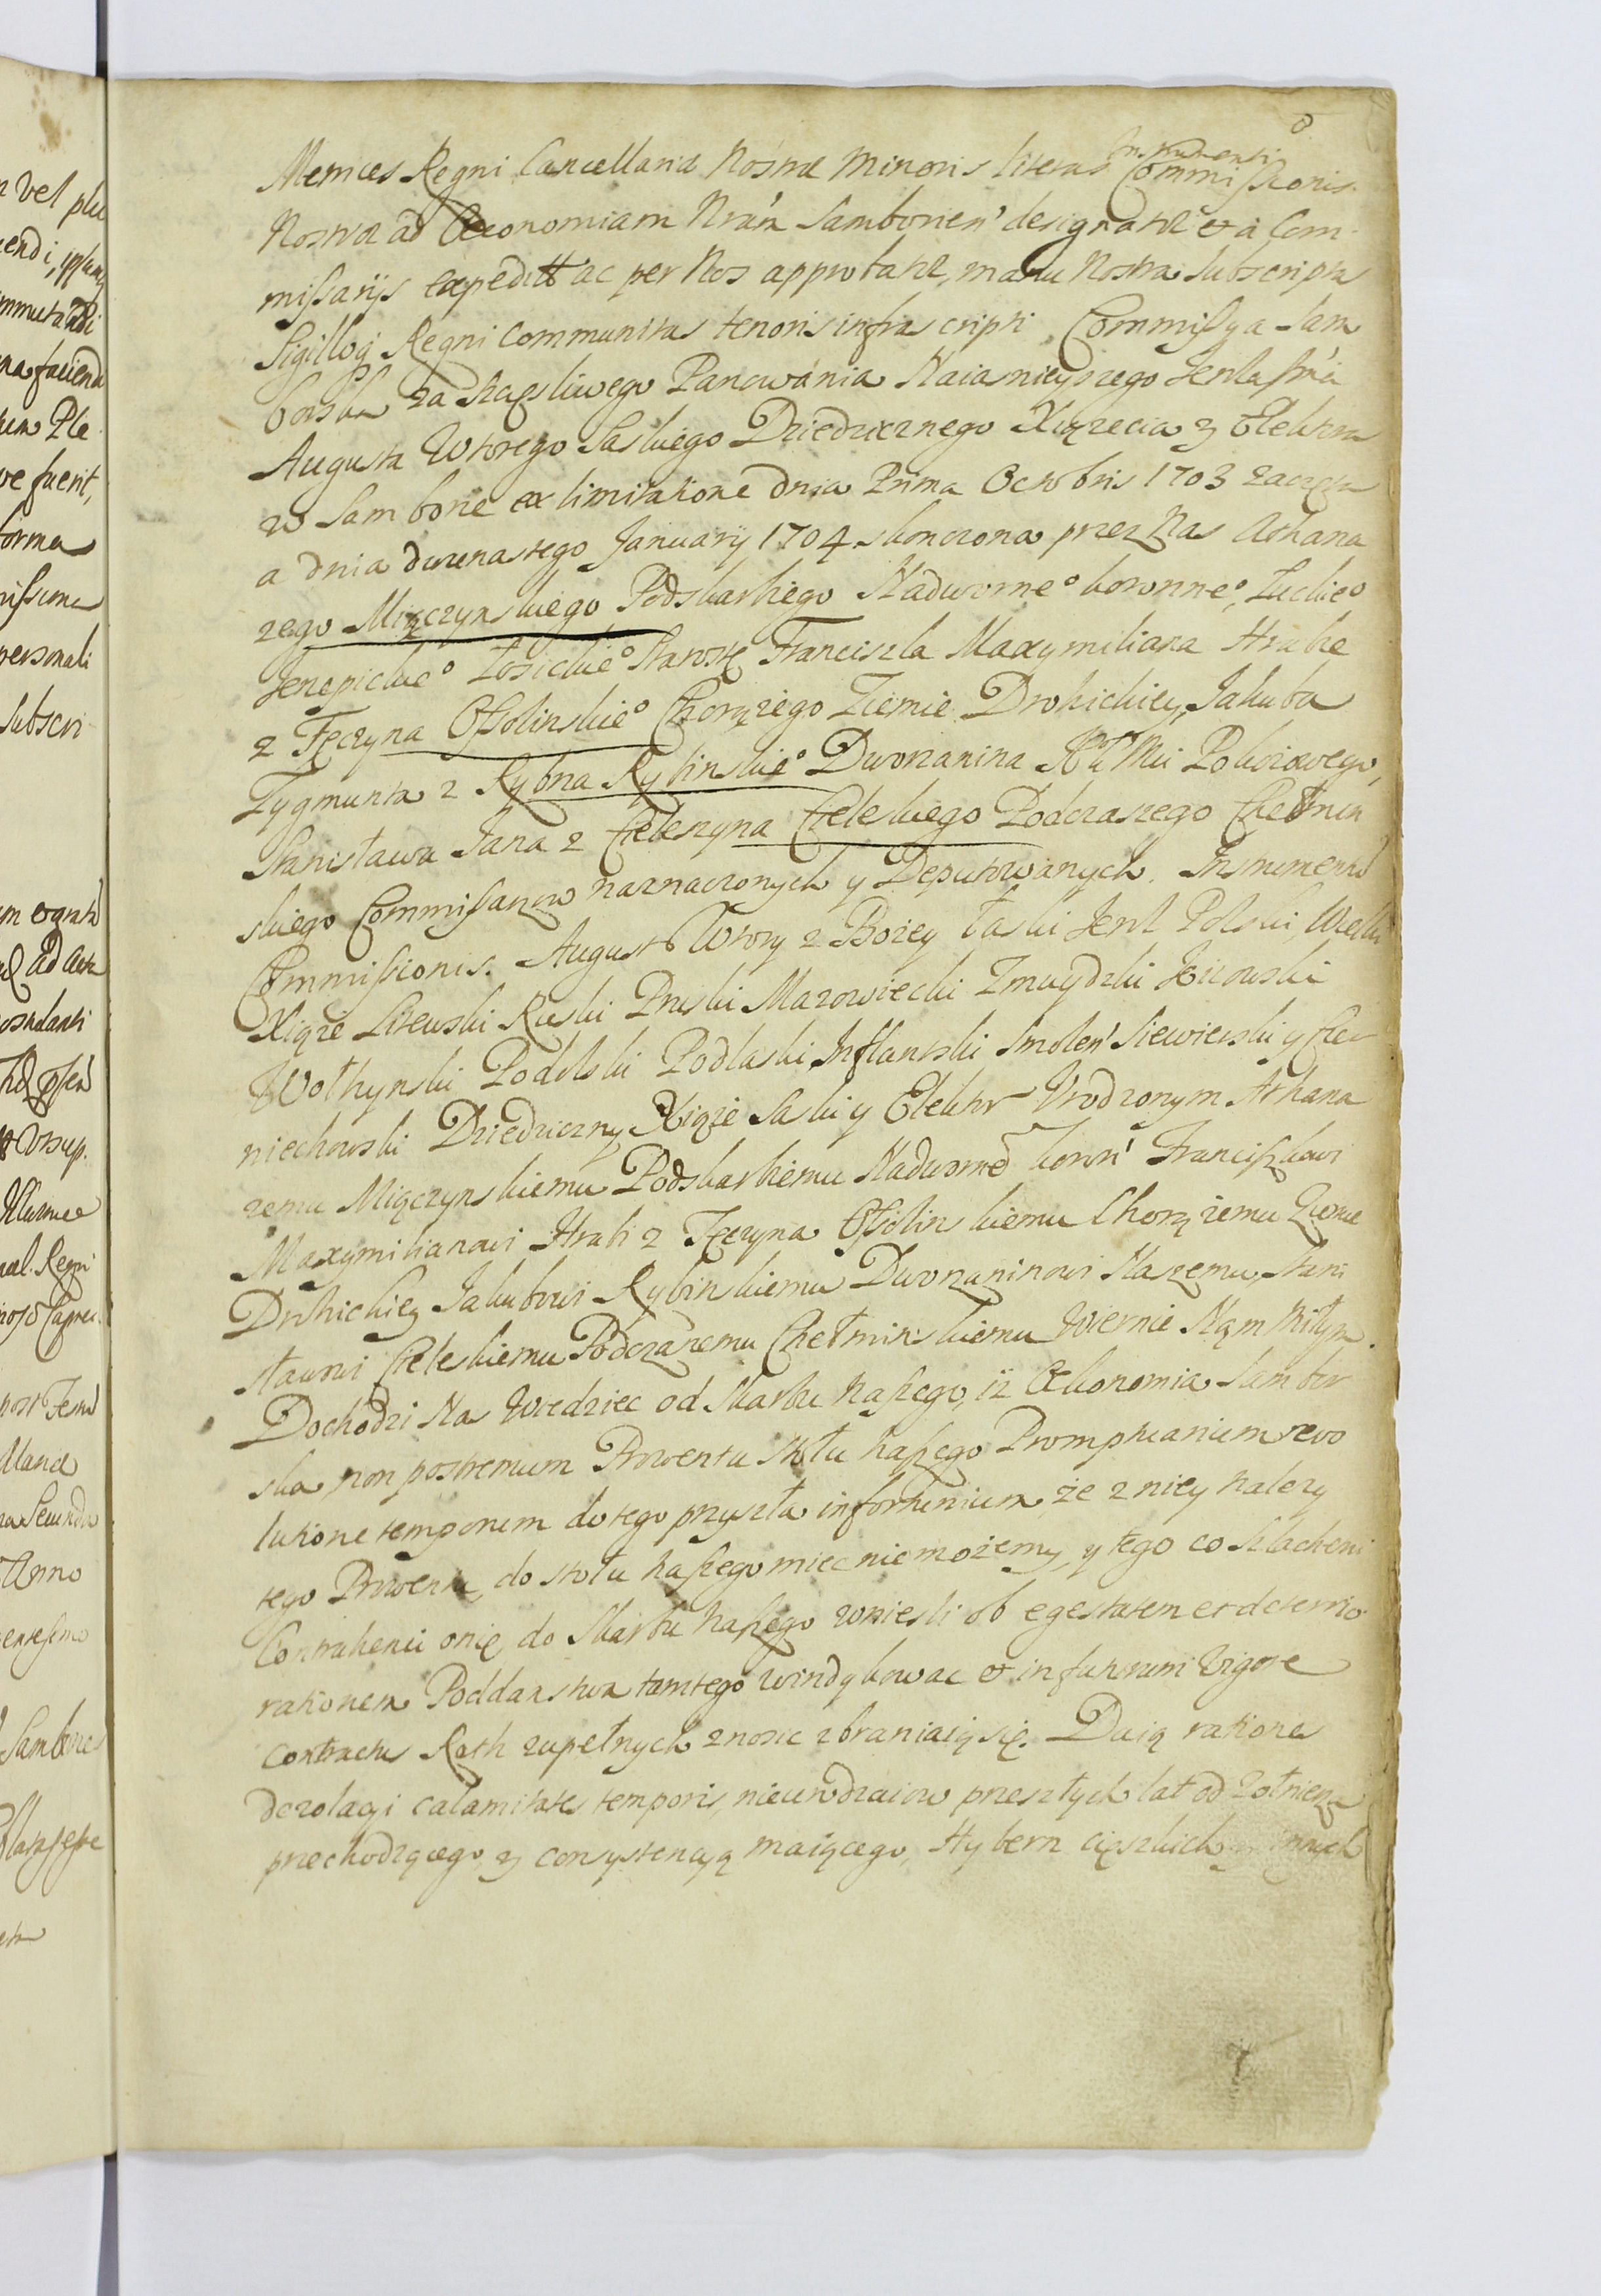 8
Metrices Regni Cancellariæ Nostræ Minoris literas Instrumenti Commissionis
Nostræ ad Œconomiam Nrãm Samborien' designatæ et à Com-
missarijs expedit ac per Nos approbatæ, manu Nostra subscripta
Sigilloq Regni communitas tenoris infra scripti. Commissya Sam
borska za szczęsliwego Panowánia Naiasnieyszego
Augusta Wtorego Saskiego Dziedzicznego Xiążecia y Elektora
w Samborze ex limitatione dnia Prima Octobris 1703 zaczęta
a dnia dwunastego January 1704 skonczona przez Nas Athana
zego Miączynskiego Podskarbiego Nadworne° koronne°, Łuckie°
Łosickie° Starostę Franciszka Maxymiliana Hrabię
z Tęczyna Ossolinskie° Chorążego Ziemie Drohickiey, Jakuba
Zygmunta z Rybna Rybinskie° Dworzanina Pokoiowego,
Stanisława Jana z Cieleszyna Cieleskiego Podczaszego Chełmin
skiego Commissarzow naznaczonych y Deputowanych. Instrument
Commissionis. August Wtory z Bożey Łaski Polski, Wielki
Xiąże Litewski Ruski Pruski Mazowiecki Zmuydzki Kiiowski
Wołhynski Podolski Podlaski Inflantski Smolen' Siewierski y Czer
niechowski Dziedziczny Xiąże Saski y Elektor Urodzonym Athana
zemu Miączynskiemu Podskarbiemu Nadworne koron' Franciszkowi
Maxymilianowi Hrabi z Tęczyna Ossolinskiemu Chorążemu Ziemie
Drohickiey Jakubowi Rybinskiemu Dworzaninowi Naszemu, Stani
sławowi Cieleskiemu Podczaszemu Chełminskiemu Wiernie Nąm Miłym.
Dochodzi Nas Wiedziec od Skarbu Naszego, iż Œkonomia Sambor
ska non postremum Prowentu stołu naszego Promptuarium revo
lutione temporum do tego przyszła infortunium, że z niey należy
tego Prowentu, do stołu naszego miec nie możemy, y tego co
Contrahenci onię do Skarbu Naszego wniesli ob egestatem et deterio
rationem Poddanstwa tamtego windykowac et in futurum vigore
contractu Rath zupełnych znosic zbraniaią się. Daią rationes
dezolacyi calamitates temporis, nieurodzaiow przeszłych lat od Żołnierza
przechodzącego, y consystencyą maiącego, Hybern cięszkich innych